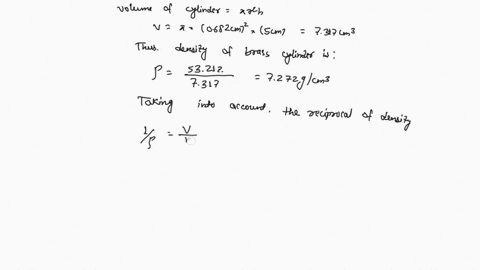 volume of cylinder = πr²h
V = π × (0.682cm)² × (5cm) = 7.317cm³
Thus density of brass cylinder is:
ρ = 53.217 / 7.317 = 7.272g/cm³
Taking into account the reciprocal of density
1/ρ = V/